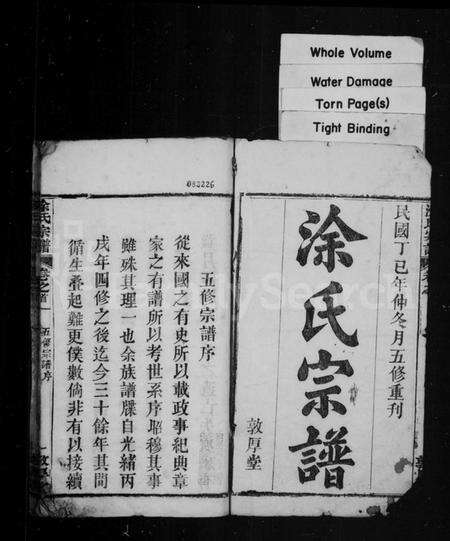 Whole Volume
Water Damage
Torn Page(s)
Tight Binding
民國丁巳年仲冬月五修重刊
涂氏宗譜
敦厚堂
083226
五修宗譜序
從來國之有史所以載政事紀典章
家之有譜所以考世系序昭穆其事
雖殊其理一也余族譜牒自光緒丙
戌年四修之後迄今三十餘年其間
循生疊起難更僕數倘非有以接續
涂氏宗譜
卷之首
五修宗譜序